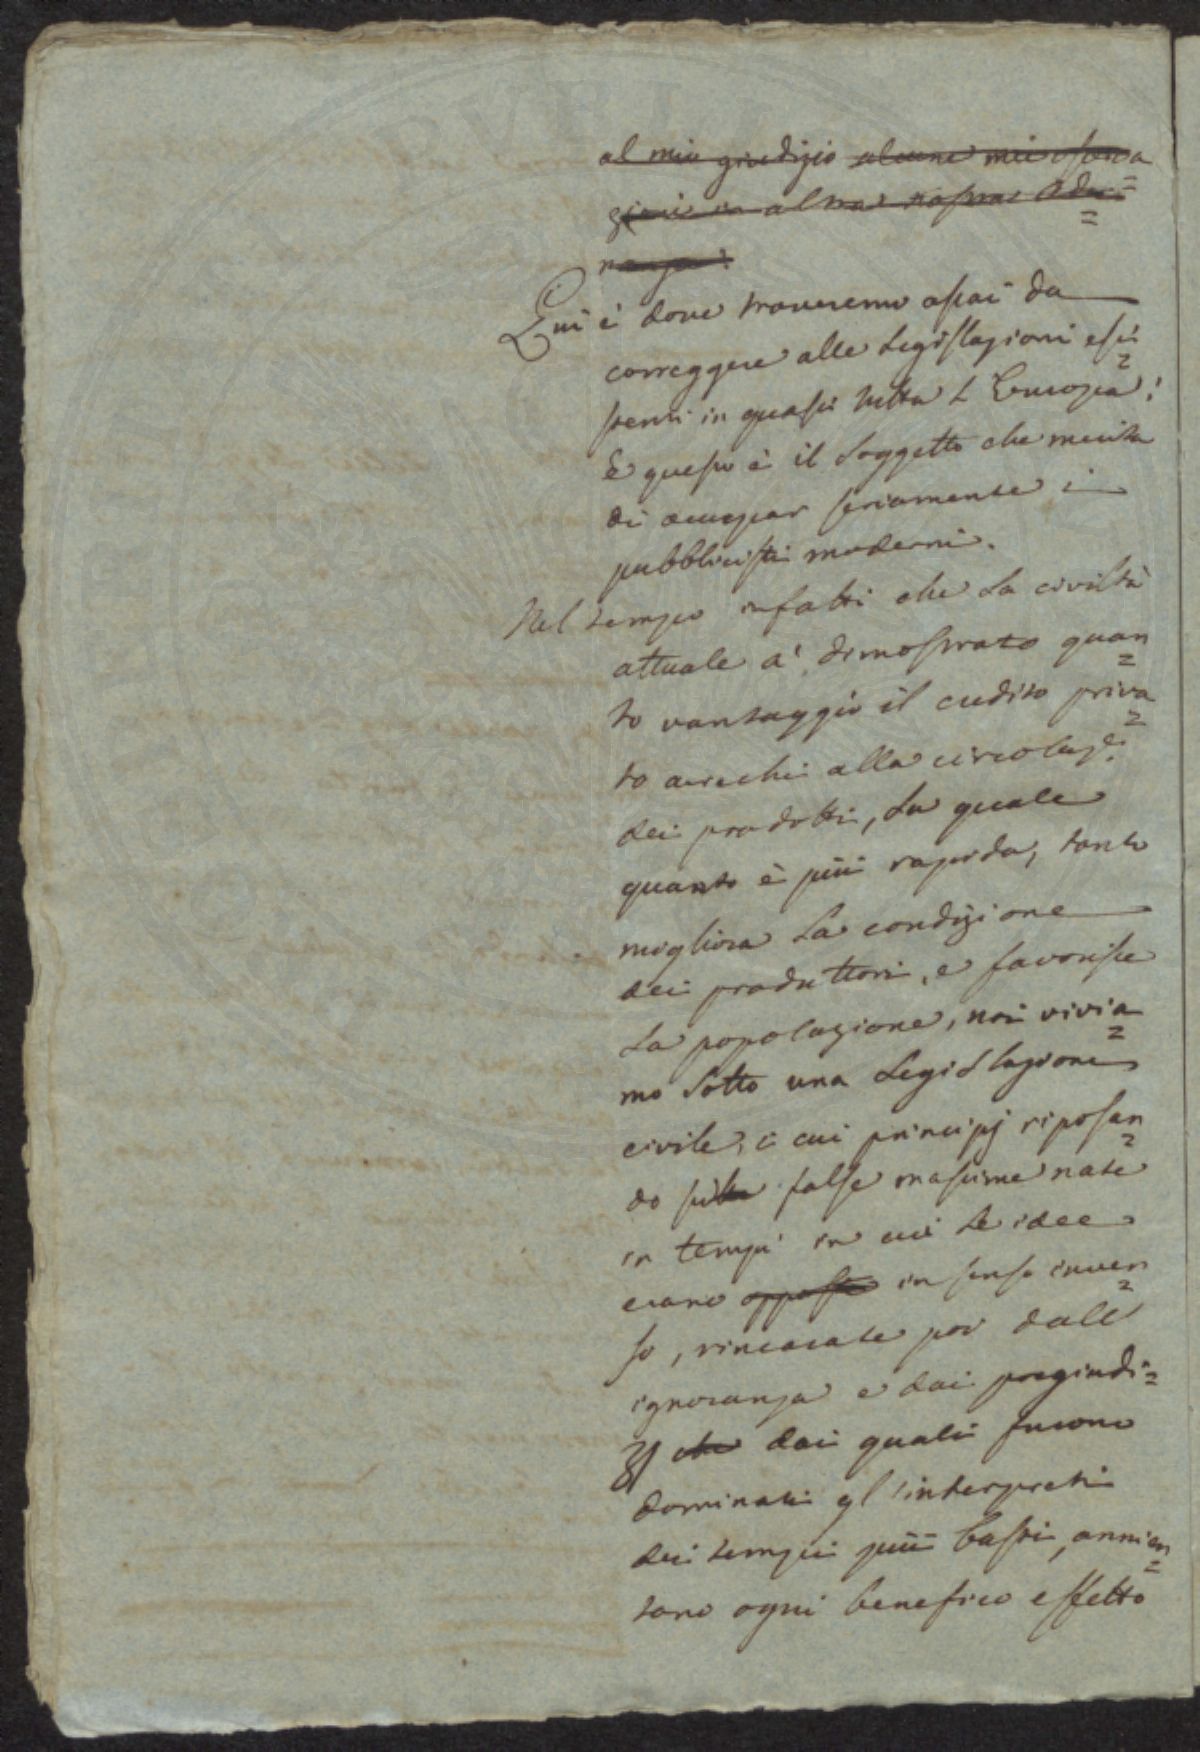 al mio giudizio alcune mie osserva
zioni in altra nostra Adu=
nanza.
Qui è dove troveremo assai da
correggere alle Legislazioni esi=
stenti in quasi tutta l'Europa;
E questo è il soggetto che merita
di occupar seriamente i
pubblicisti moderni.
Nel tempo infatti che la civiltà
attuale à dimostrato quan=
to vantaggio il credito priva=
to arrechi alla circolaz.e
dei prodotti, la quale
quanto è più rapida, tanto
migliora la condizione
dei produttori, e favorisce
la popolazione, noi vivia=
mo sotto una Legislazione
civile, i cui principj riposan=
do su false massime nate
in tempi in cui le idee
erano opposte in senso inver=
so, rincarate poi dall'
ignoranza e dai pregiudi=
zj che dai quali furono
dominati gl'interpreti
dei tempi più bassi, annien=
tano ogni benefico effetto